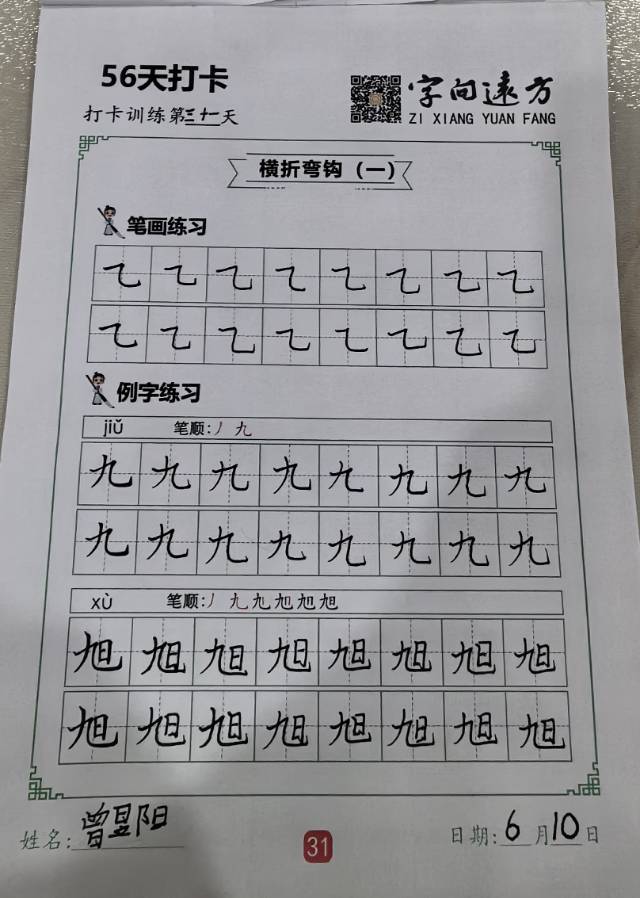 56天打卡
打卡训练第三十一天
字向远方
ZI XIANG YUAN FANG
横折弯钩（一）
笔画练习
乙乙乙乙乙乙乙乙
乙乙乙乙乙乙乙乙
例字练习
jiǔ 笔顺:丿九
九九九九九九九九
九九九九九九九九
xù 笔顺:丿九九旭旭旭
旭旭旭旭旭旭旭旭
旭旭旭旭旭旭旭旭
姓名:曾昱阳
31
日期:6月10日